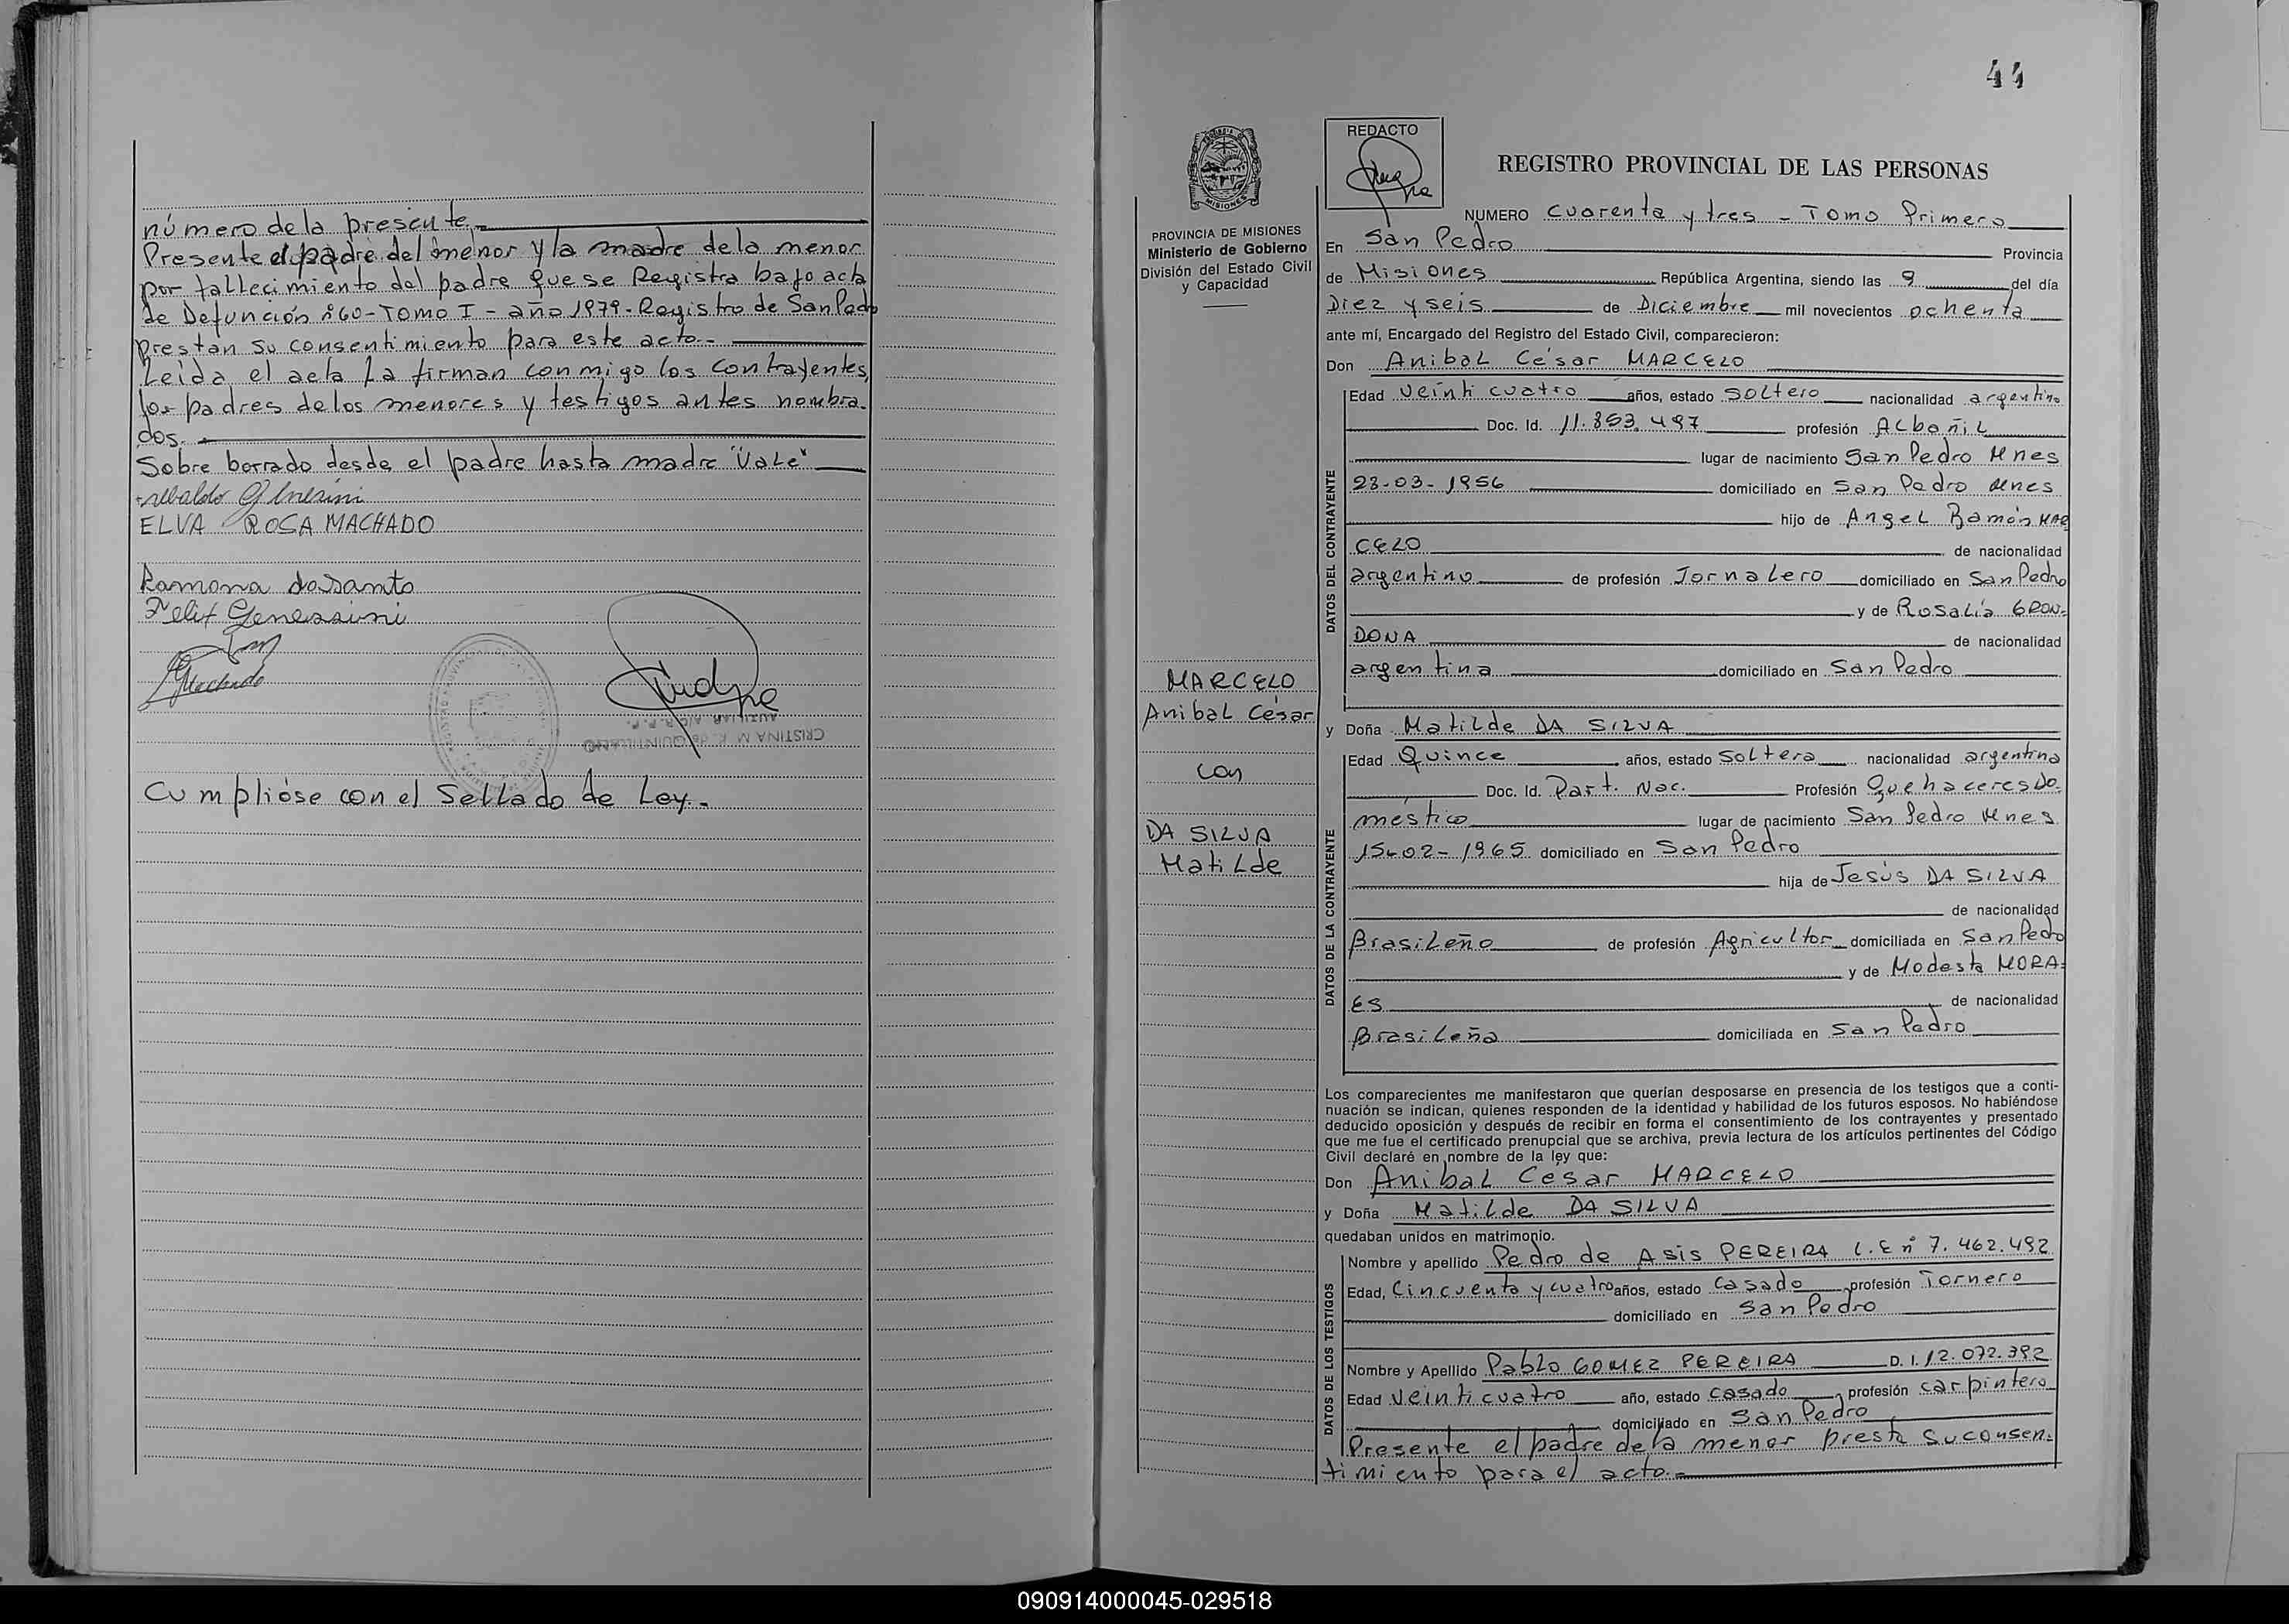 número de la presente.
Presente el padre del menor y la madre de la menor
por fallecimiento del padre que se Registra bajo acta
de Defunción nº 60 - TOMO I - año 1979 - Registro de San Pedro
Prestan su consentimiento para este acto.-
Leída el acta la firman conmigo los contrayentes,
los padres de los menores y testigos antes nombra-
dos.
Sobre borrado desde el padre hasta madre "Vale"
ELVA ROSA MACHADO
Ramona dosSanto
Felix Genessini
Machado
AUXILIAR
CRISTINA M. K. de QUINTILLANO
Cumplióse con el Sellado de Ley.-
44
REDACTO
REGISTRO PROVINCIAL DE LAS PERSONAS
MISIONES
PROVINCIA DE MISIONES
Ministerio de Gobierno
División del Estado Civil
y Capacidad
MARCELO
Anibal César
con
DA SILVA
Matilde
NUMERO Cuarenta y tres - Tomo Primero
En San Pedro Provincia
de Misiones República Argentina, siendo las 9 del día
Diez y seis de Diciembre mil novecientos ochenta
ante mí, Encargado del Registro del Estado Civil, comparecieron:
Don Anibal César MARCELO
DATOS DEL CONTRAYENTE
Edad veinti cuatro años, estado soltero nacionalidad argentino
Doc. Id. 11.853.497 profesión Albañil
lugar de nacimiento San Pedro Mnes
23-03-1956 domiciliado en San Pedro Mnes
hijo de Angel Ramón MAR
CELO de nacionalidad
argentino de profesión Jornalero domiciliado en San Pedro
y de Rosalía GRON-
DONA de nacionalidad
argentina domiciliado en San Pedro
y Doña Matilde DA SILVA
DATOS DE LA CONTRAYENTE
Edad Quince años, estado soltera nacionalidad argentina
Doc. Id. Part. Nac. Profesión Quehaceres Do-
méstico lugar de nacimiento San Pedro Mnes
15-02-1965 domiciliado en San Pedro
hija de Jesús DA SILVA
de nacionalidad
Brasileño de profesión Agricultor domiciliada en San Pedro
y de Modesta MORA-
ES de nacionalidad
Brasileña domiciliada en San Pedro
Los comparecientes me manifestaron que querían desposarse en presencia de los testigos que a conti-
nuación se indican, quienes responden de la identidad y habilidad de los futuros esposos. No habiéndose
deducido oposición y después de recibir en forma el consentimiento de los contrayentes y presentado
que me fue el certificado prenupcial que se archiva, previa lectura de los artículos pertinentes del Código
Civil declaré en nombre de la ley que:
Don Anibal César MARCELO
y Doña Matilde DA SILVA
quedaban unidos en matrimonio.
DATOS DE LOS TESTIGOS
Nombre y apellido Pedro de Asis PEREIRA L.E nº 7.462.492
Edad, Cincuenta y cuatro años, estado casado profesión Tornero
domiciliado en San Pedro
Nombre y Apellido Pablo GOMEZ PEREIRA D. I. 12.072.392
Edad veinticuatro año, estado casado, profesión carpintero
domiciliado en San Pedro
Presente el padre de la menor presta su consen-
timiento para el acto.-
090914000045-029518